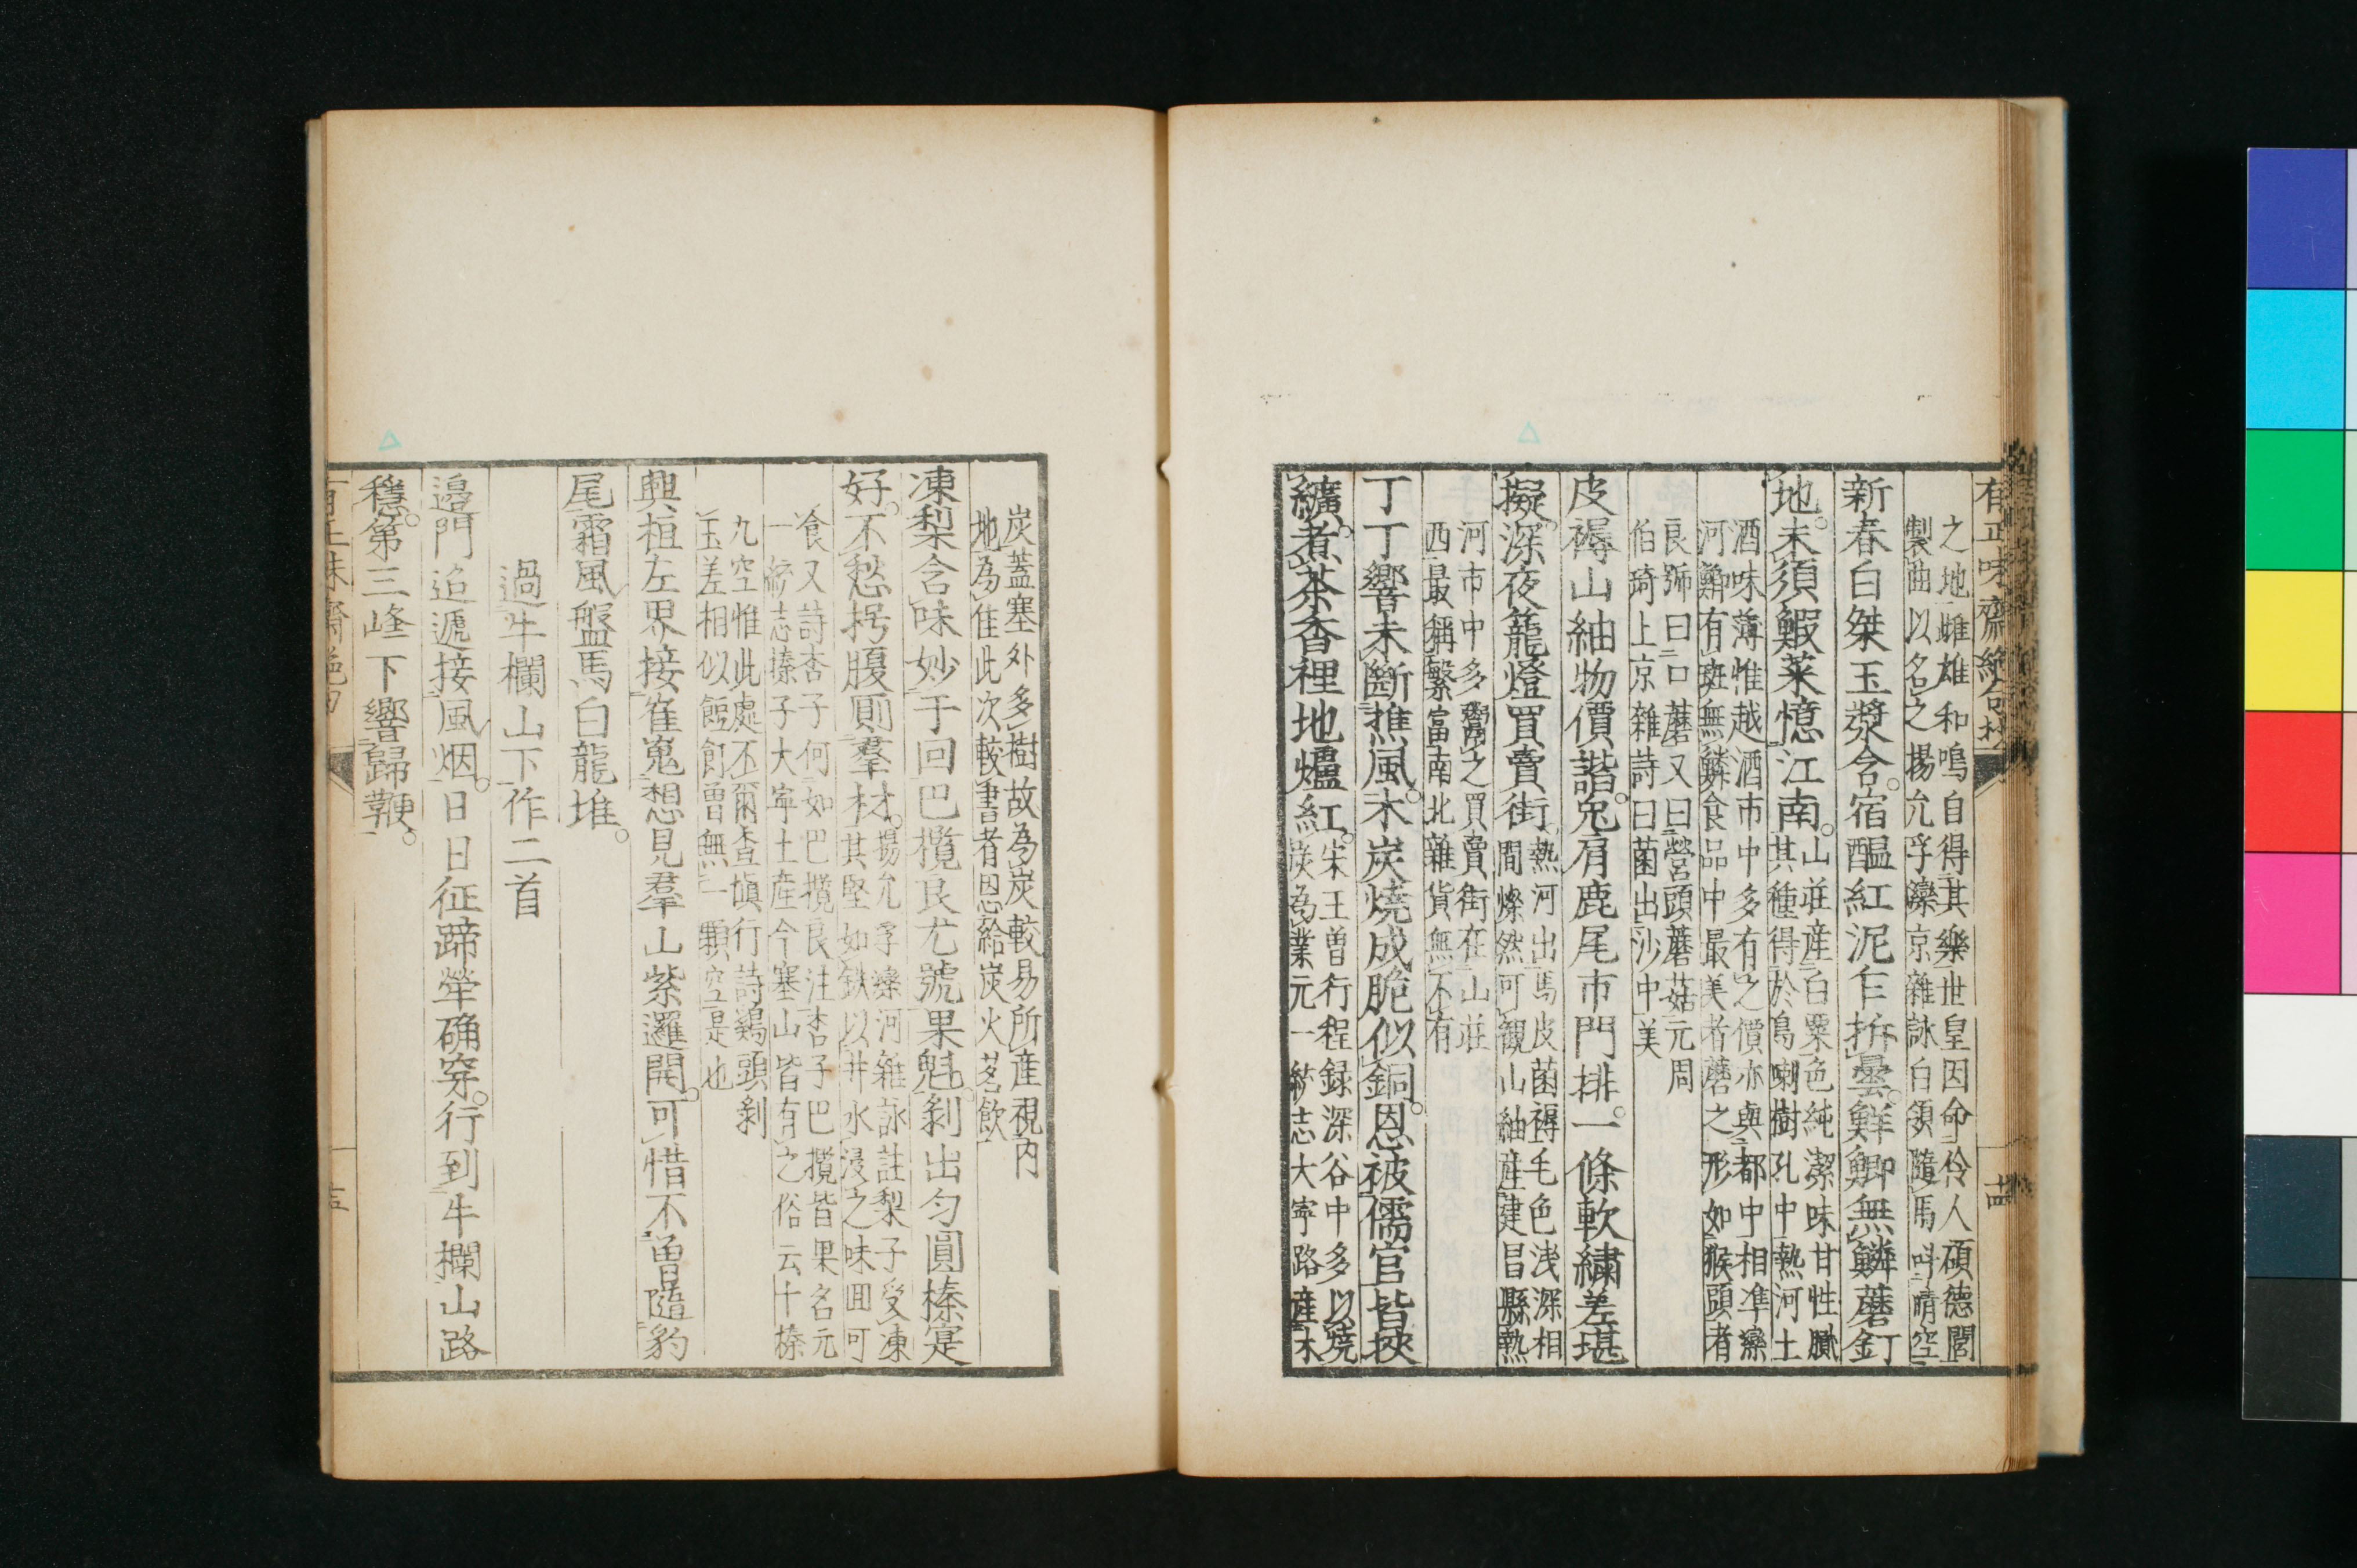 有正味齋絶句抄
之地雌雄和鳴自得其樂世皇因命伶人碩德閭
製曲以名之楊允孚灤京雜詠白領隨馬叫晴空
新春白粲玉漿含宿醞紅泥乍拆曇鮮鯽無鱗蘑釘
地未須鰕菜憶江南
山莊産白粟色純潔味甘性膩
其種得於烏喇樹孔中熱河土
酒味薄惟越酒市中多有之價亦與都中相凖灤
河鯽有斑無鱗食品中最美者蘑之形如猴頭者
良號曰口蘑又曰營頭蘑菇元周
伯琦上京雜詩曰菌出沙中美
皮褥山紬物價諧兔肩鹿尾市門排一條軟繡差堪
擬深夜籠燈買賣街
熱河出馬皮菌褥毛色浅深相
間燦然可觀山紬産建昌縣熱
河市中多鬻之買賣街在山莊
西最稱繁富南北雜貨無不有
丁丁響未斷樵風木炭燒成脆似銅恩被儒官皆挾
纊煮茶香裡地爐紅
宋王曽行程録深谷中多以燒
炭為業元一統志大寧路産木
十四
炭蓋塞外多樹故為炭較易所産視内
地為佳此次較書者因恩給炭火茗飲
凍梨含味妙于回巴欖良尤號果魁剝出勻圓榛寔
好不愁捬腹厠羣材
楊允孚灤河雜詠註梨子受凍
其堅如鉄以井水浸之味囬可
食又詩杏子何如巴欖良注杏子巴欖皆果名元
一統志榛子大寧土産今塞山皆有之俗云十榛
九空惟此處不爾查愼行詩鷄頭剝
玉差相似飽飣曽無一顆空是也
興桓左界接崔嵬想見羣山紫邏開可惜不曽隨豹
尾霜風盤馬白龍堆
過牛欄山下作二首
邉門迢遞接風烟日日征蹄犖确穿行到牛欄山路
穩第三峰下響歸鞭